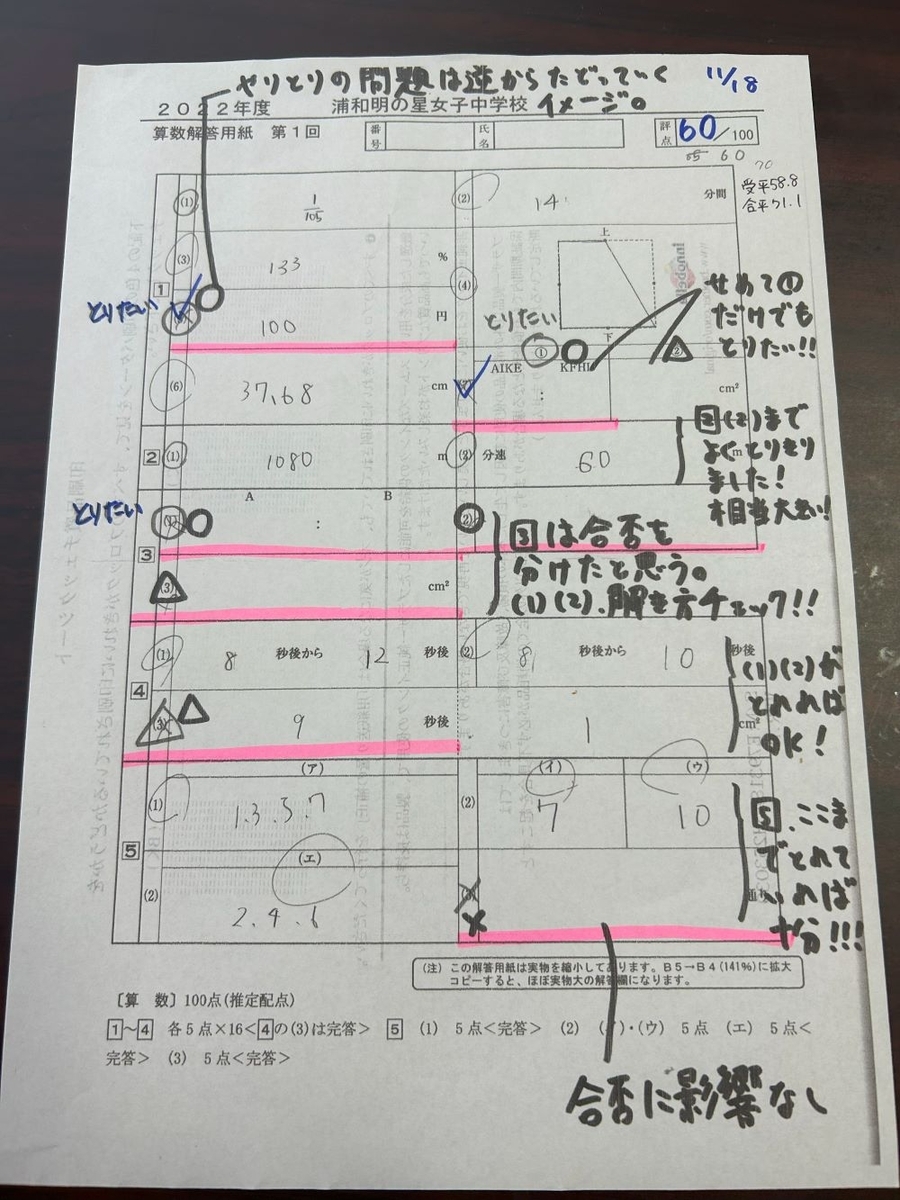 やりとりの問題は逆からたどっていく
イメージ。
11/18
2022年度 浦和明の星女子中学校
算数解答用紙 第1回
番号
氏名
評点 60 /100
55 60
70
受平58.8
合平71.1
1
(1) 1/105
(2) 14 分間
(3) 133 %
(4) 上
下
とりたい
100 円
せめて①
だけでも
とりたい!!
とりたい
① ②
AIKE KFHI
: cm²
(6) 37.68 cm
2
(1) 1080 m
(2) 分速 60 m
2(2)まで
よくとりきり
ました!
相当大きい!
とりたい
3
(1) A B
:
(2)
(3) cm²
3は合否を
分けたと思う。
(1)(2).解き方チェック!!
4
(1) 8 秒後から 12 秒後
(2) 8 秒後から 10 秒後
(3) 9 秒後
1 cm²
(1)(2)が
とれれば
OK!
5
(1) (ア)
1.3.5.7
(2) (イ) (ウ)
7 10
(2) (エ)
2.4.6
(3) 通り
5.ここま
でとれて
いれば
十分!!!
(注) この解答用紙は実物を縮小してあります。B5→B4(141%)に拡大
コピーすると、ほぼ実物大の解答欄になります。
〔算 数〕100点(推定配点)
1~4 各5点×16<4の(3)は完答> 5 (1) 5点<完答> (2) (イ)・(ウ) 5点 (エ) 5点<
完答> (3) 5点<完答>
合否に影響なし